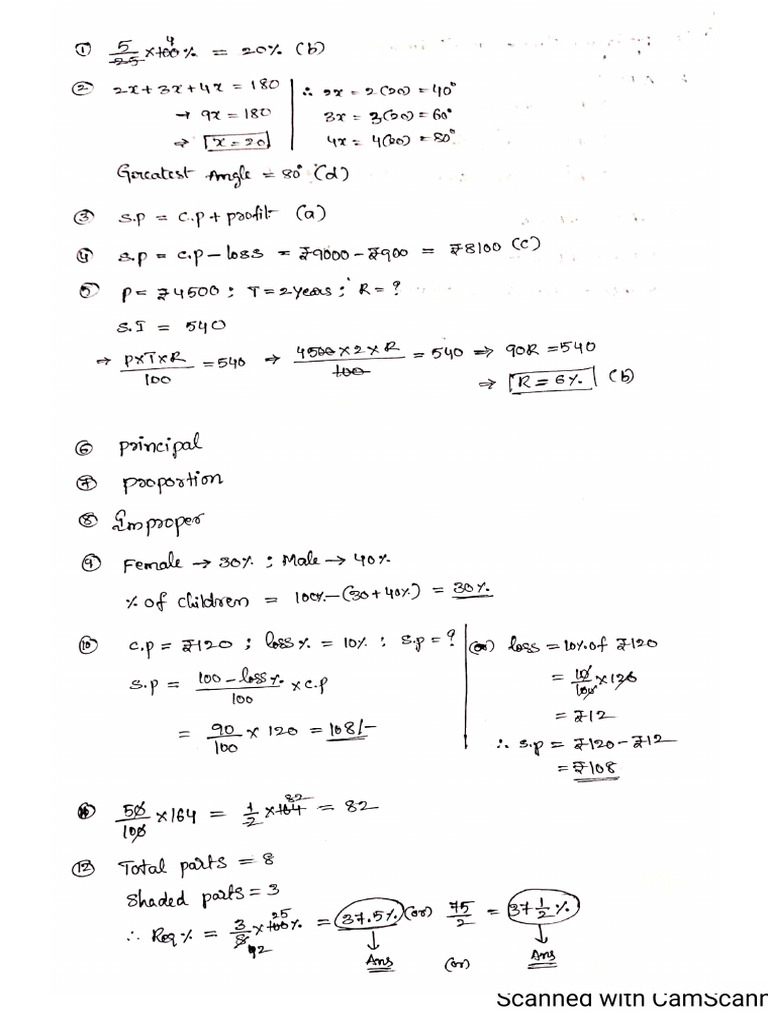 ① 5/25 × 100% = 20% (b)
4
② 2x + 3x + 4x = 180 | ∴ 2x = 2(20) = 40°
→ 9x = 180 | 3x = 3(20) = 60°
⇒ x = 20 | 4x = 4(20) = 80°
Greatest Angle = 80° (d)
③ S.p = C.p + profit (a)
④ S.p = C.p - loss = ₹9000 - ₹900 = ₹8100 (c)
⑤ P = ₹4500 ; T = 2 years ; R = ?
S.I = 540
⇒ P×T×R/100 = 540 ⇒ 4500 × 2 × R/100 = 540 ⇒ 90R = 540
⇒ R = 6% (b)
⑥ principal
⑦ proportion
⑧ Improper
⑨ Female → 30% ; Male → 40%
% of children = 100% - (30 + 40%) = 30%
⑩ C.p = ₹120 ; loss% = 10% ; S.p = ? | (or) loss = 10% of ₹120
S.p = 100 - loss%/100 × C.p | = 10/100 × 120
= 90/100 × 120 = 108/- | = ₹12
∴ S.p = ₹120 - ₹12
= ₹108
50/100 × 164 = 1/2 × 164 = 82
82
⑫ Total parts = 8
Shaded parts = 3
∴ Req% = 3/8 × 100% = 37.5% (or) 75/2 = 37 1/2 %
25
2
Ans (or) Ans
Scanned with CamScann